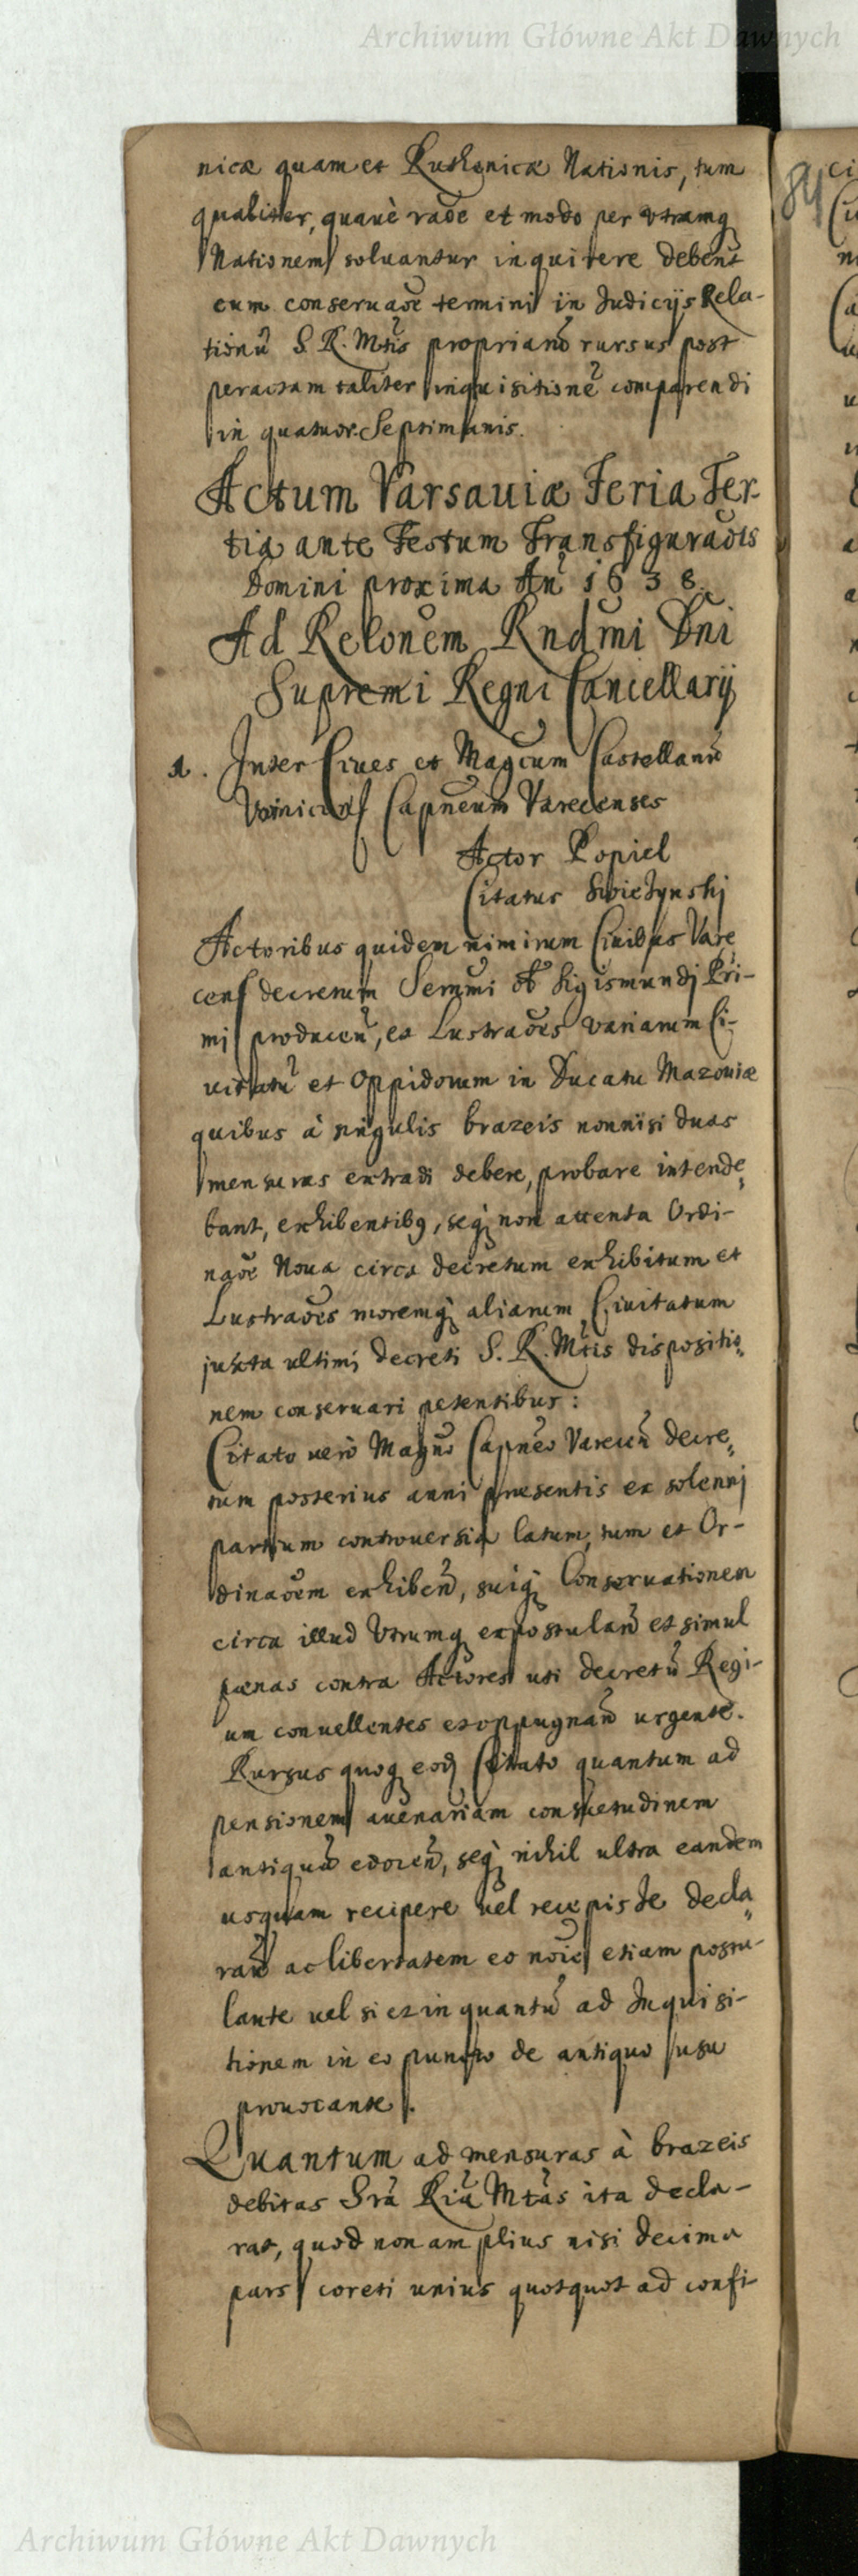 Archiwum Główne Akt Dawnych
nicæ quam et Ruthenicæ Nationis, tum
qualiter, quauè raõe et modo per vtramq
Nationem soluantur inquirere debent
cum conseruaõe termini in Judicijs Rela-
tionũ S. R. Mtis proprianõ rursus post
peractam taliter inquisitionẽ comparendi
in quatuor Septimanis.
Actum Varsauiæ Feria Ter-
tia ante Festum Transfiguraõis
Domini proxima An̄ 1638.
Ad Relonem Rndmi Dni
Supremi Regni Cancellarij
1. Inter Ciues et Magcum Castellanũ
Capneum Varecenses
Actor Popiel
Citatus
Actoribus quidem nimirum Ciuibus Vare
cens decretum Sermi olĩ Sigismundj Pri-
mi producen̄, et Lustraões variarum Ci-
uitatũ et Oppidorum in Ducatu Mazouiæ
quibus à singulis brazeis nonnisi duas
mensuras extradi debere, probare intende
bant, exhibentibq, seq non attenta Ordi-
naõe Noua circa decretum exhibitum et
Lustraões moremq aliarum Ciuitatum
juxta ultimi decreti S. R. Mtis dispositio
nem conseruari petentibus :
Citato verò Magno Capneo Varecen̄ decre
tum posterius anni præsentis ex solennj
partium controuersia latum, tum et Or-
dinaõem exhiben̄, suiq Conseruationem
circa illud Vtrumq expostulan̄ et simul
pænas contra Actores uti decretũ Regi-
um conuellentes et oppugnan̄ urgente.
Rursus quoq eoq Citato quantum ad
pensionem auenariam consuetudinem
antiquã edocen̄, seq nihil ultra eandem
usquam recipere vel recepisse decla
ran̄ ac libertatem eo noie etiam postu-
lante vel si et in quantũ ad Inquisi-
tionem in eo puncto de antiquo usu
prouocante.
Quantum ad mensuras à brazeis
debitas Srã Riã Mtãs ita decla-
rat, quod non amplius nisi decima
pars coreti unius quotquot ad confi-
84
Archiwum Główne Akt Dawnych